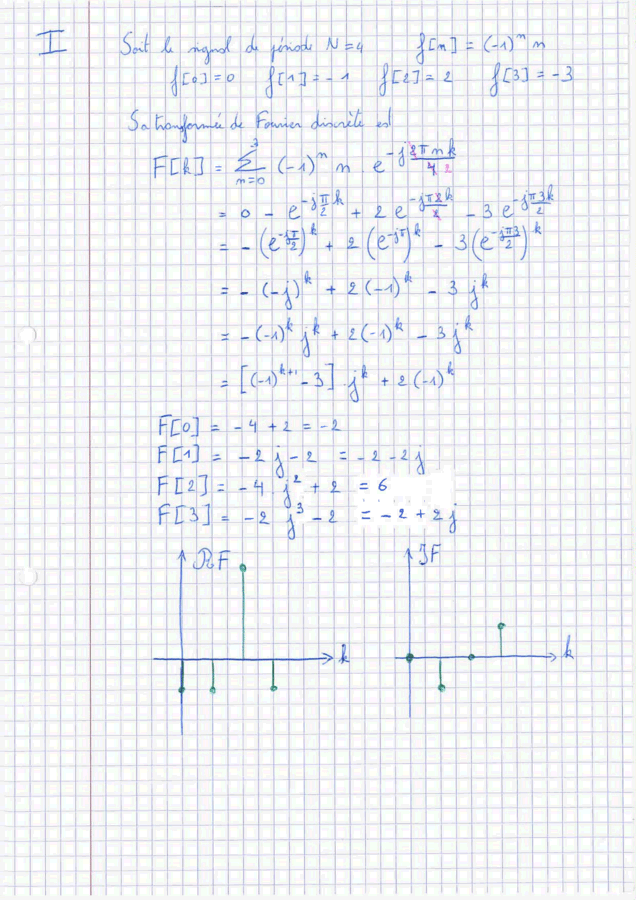 I Soit le signal de période N=4 f[n] = (-1)^n n
f[0]=0 f[1]=-1 f[2]=2 f[3]=-3
Sa transformée de Fourier discrète est
F[k] = ∑_{n=0}^{3} (-1)^n n e^{-j 2πnk/4 2}
= 0 - e^{-jπ/2 k} + 2 e^{-jπ2k/2} - 3 e^{-jπ3k/2}
= -(e^{-jπ/2})^k + 2(e^{-jπ})^k - 3(e^{-jπ3/2})^k
= -(-j)^k + 2(-1)^k - 3 j^k
= -(-1)^k j^k + 2(-1)^k - 3 j^k
= [(-1)^{k+1} - 3] j^k + 2(-1)^k
F[0] = -4 + 2 = -2
F[1] = -2 j - 2 = -2 - 2 j
F[2] = -4 j^2 + 2 = 6
F[3] = -2 j^3 - 2 = -2 + 2 j
ℜF ℑF
k k